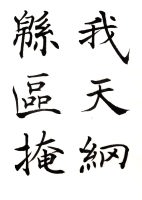 我天網
緜區掩